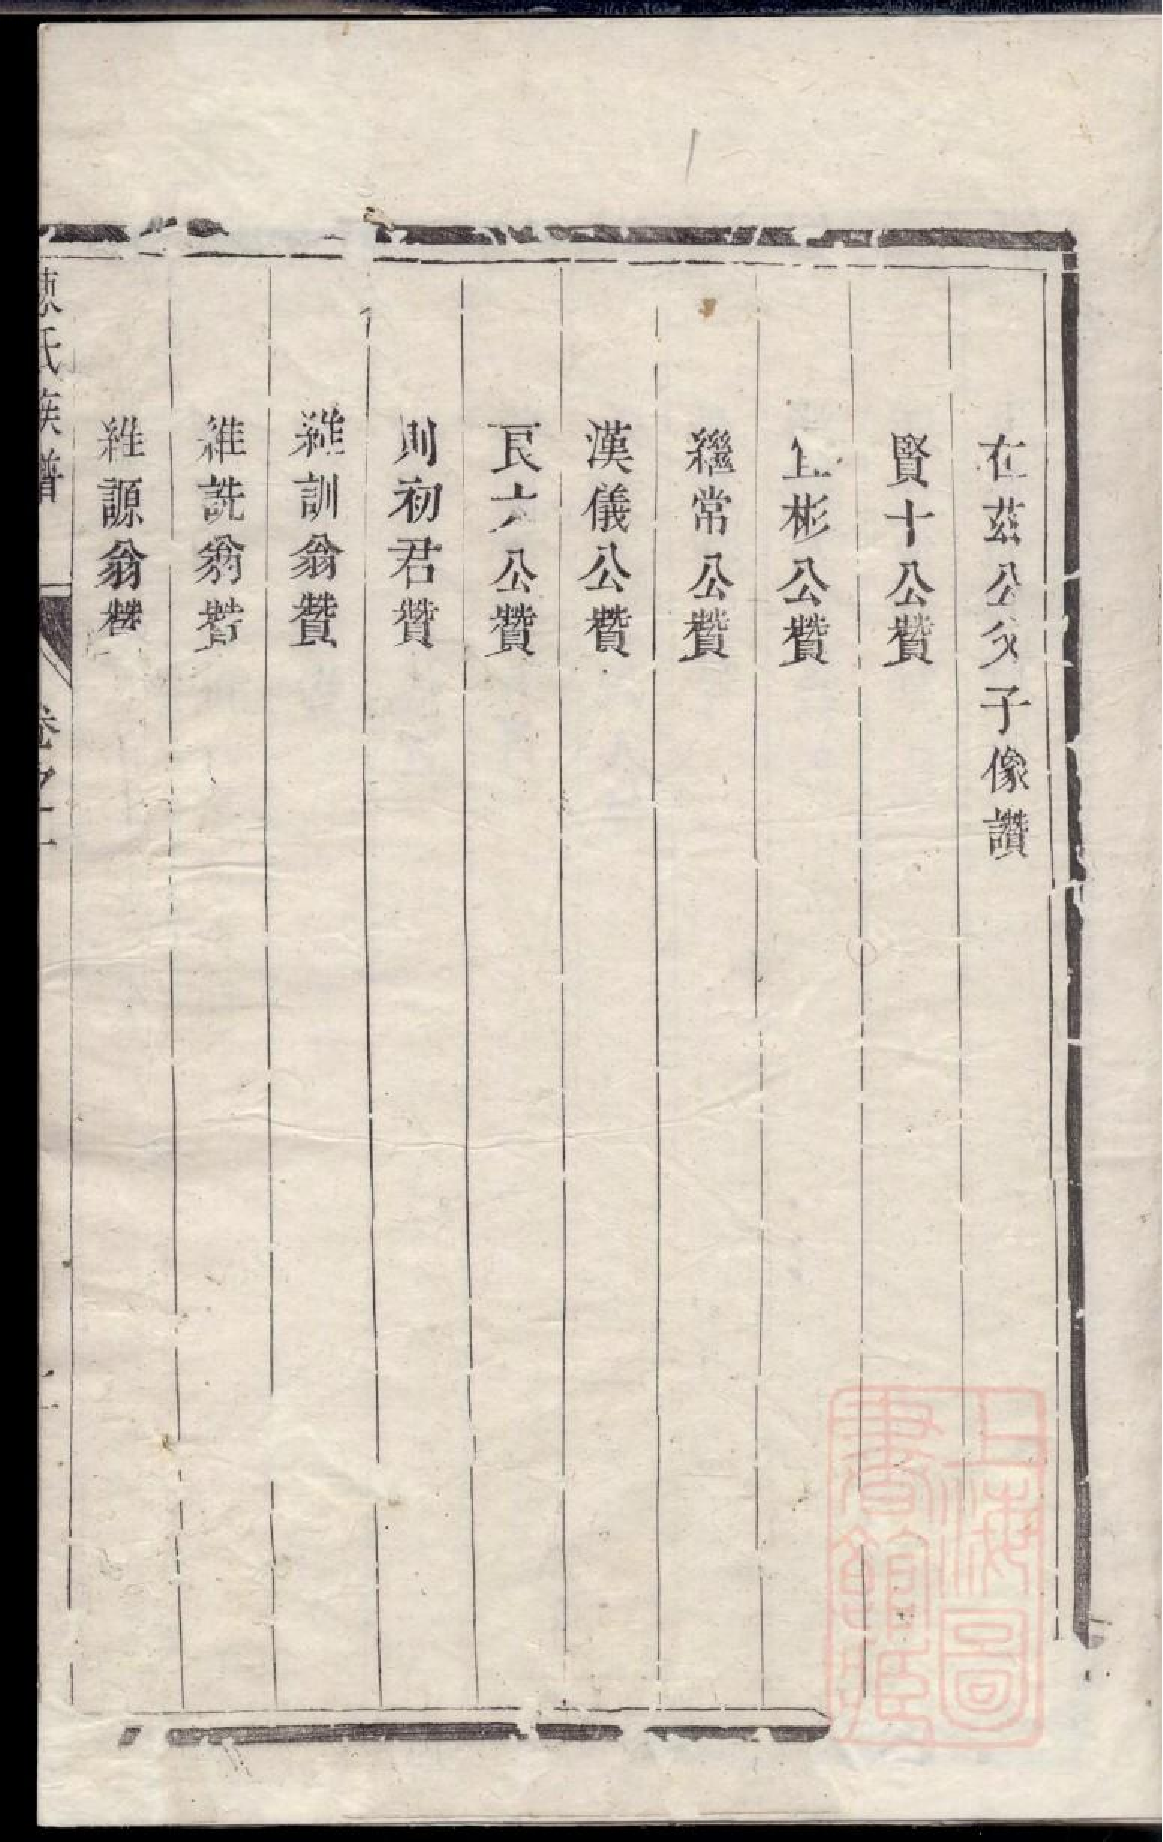 在茲公父子像讚
賢十公贊
彬公贊
繼常公贊
漢儀公贊
良六公贊
則初君贊
維訓翁贊
維詵翁贊
維謜翁贊
氏族譜
卷之
上海圖
書館藏